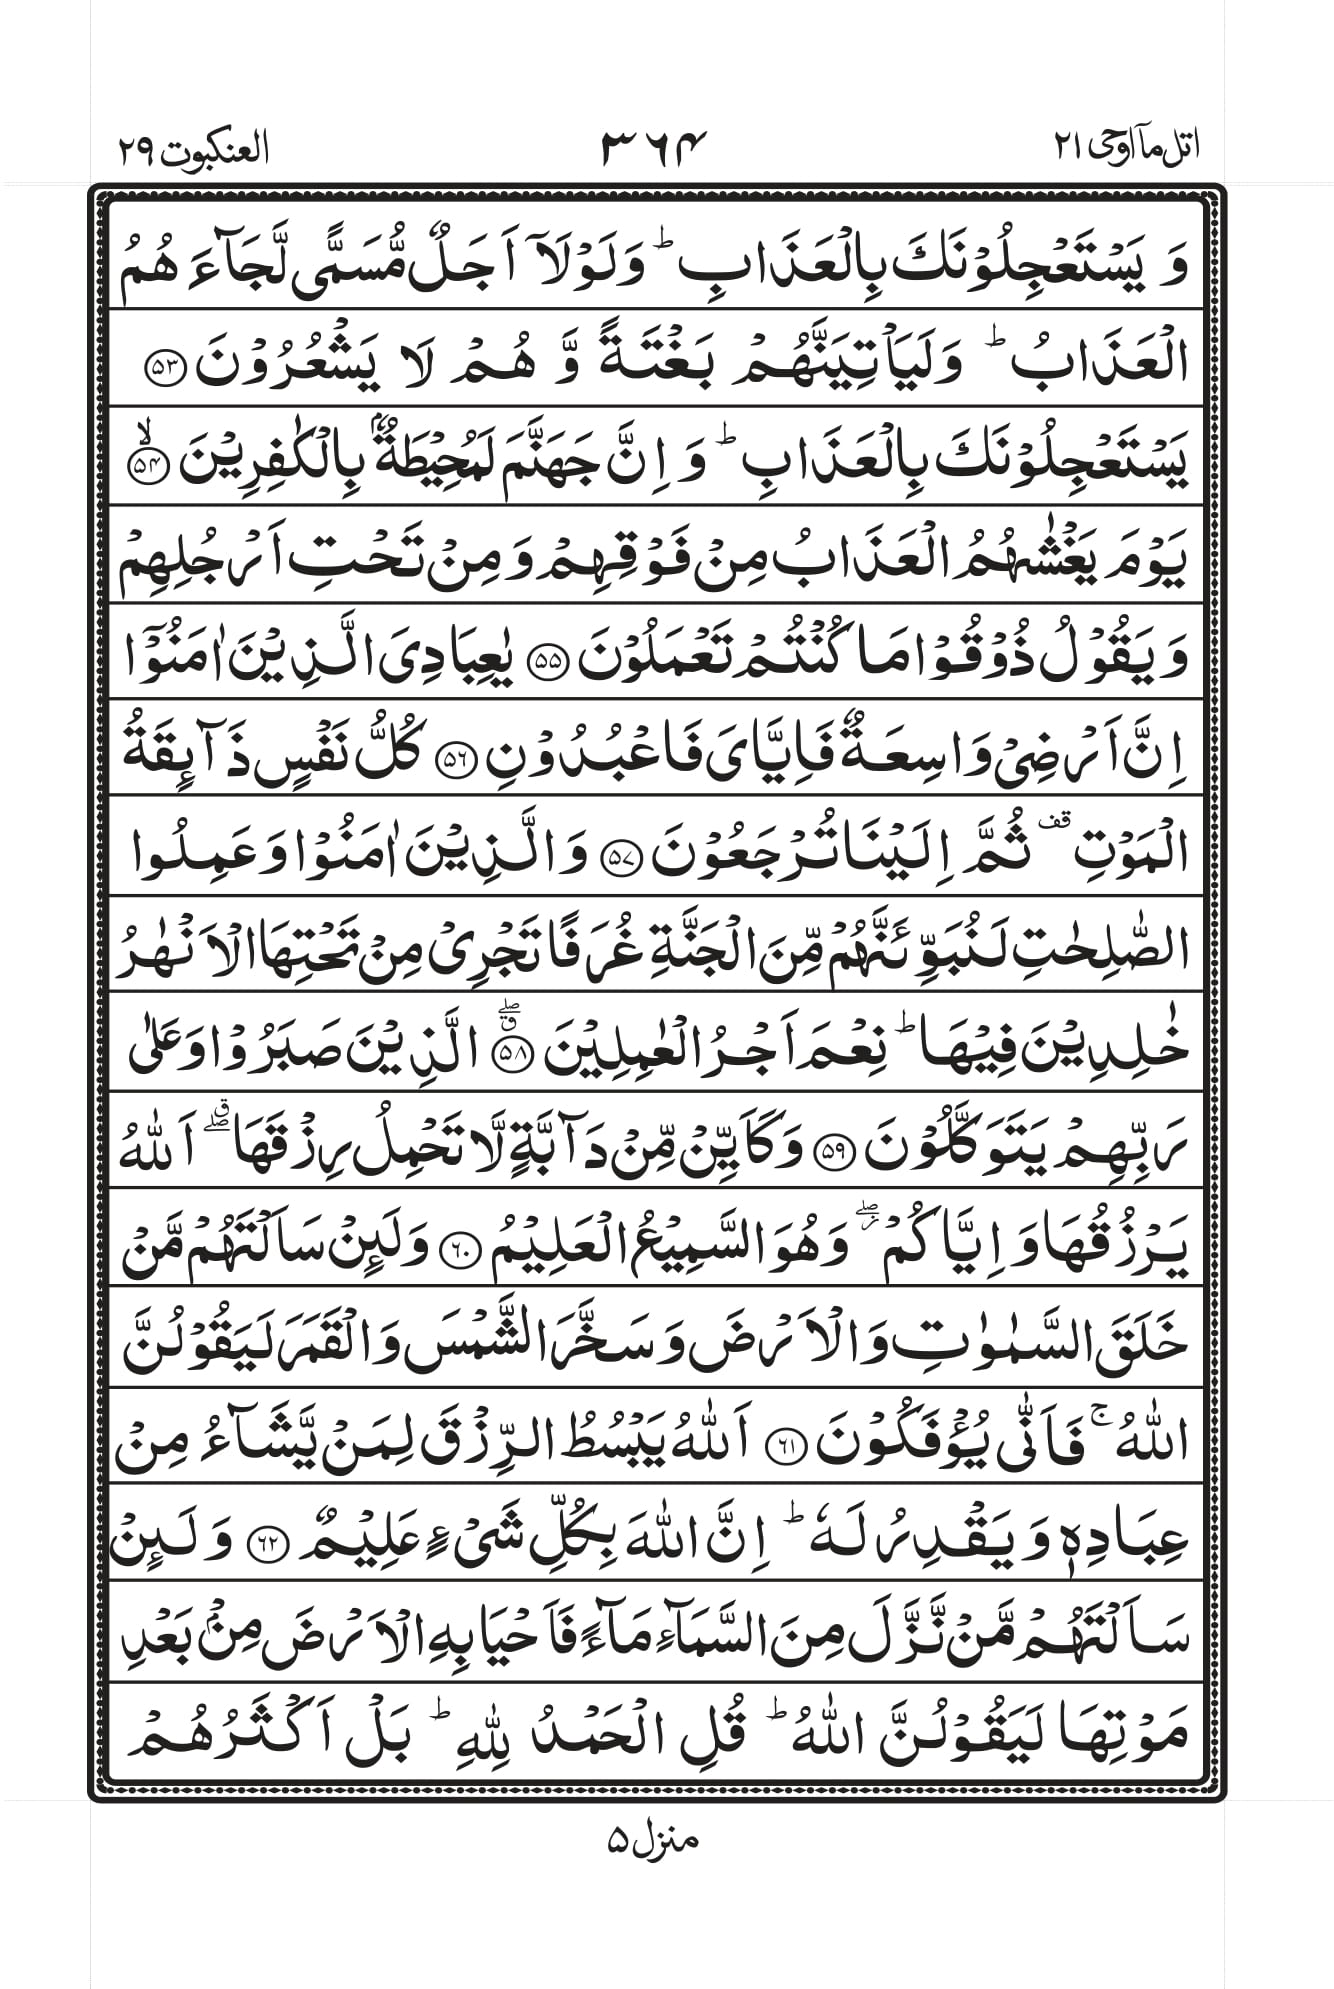 اتل مآ اوحی ۲۱ ۳۶۴ العنکبوت ۲۹
وَ یَسۡتَعۡجِلُوۡنَكَ بِالۡعَذَابِ ؕ وَلَوۡلَاۤ اَجَلٌ مُّسَمًّی لَّجَآءَ هُمُ
الۡعَذَابُ ؕ وَلَیَاۡتِیَنَّهُمۡ بَغۡتَةً وَّ هُمۡ لَا یَشۡعُرُوۡنَ ﴿۵۳﴾
یَسۡتَعۡجِلُوۡنَكَ بِالۡعَذَابِ ؕ وَ اِنَّ جَهَنَّمَ لَمُحِیۡطَةٌۢ بِالۡكٰفِرِیۡنَ ﴿ۙ۵۴﴾
یَوۡمَ یَغۡشٰىهُمُ الۡعَذَابُ مِنۡ فَوۡقِهِمۡ وَ مِنۡ تَحۡتِ اَرۡجُلِهِمۡ
وَ یَقُوۡلُ ذُوۡقُوۡا مَا كُنۡتُمۡ تَعۡمَلُوۡنَ ﴿۵۵﴾ یٰعِبَادِیَ الَّذِیۡنَ اٰمَنُوۡۤا
اِنَّ اَرۡضِیۡ وَاسِعَةٌ فَاِیَّایَ فَاعۡبُدُوۡنِ ﴿۵۶﴾ كُلُّ نَفۡسٍ ذَآئِقَةُ
الۡمَوۡتِ ۟ ثُمَّ اِلَیۡنَا تُرۡجَعُوۡنَ ﴿۵۷﴾ وَ الَّذِیۡنَ اٰمَنُوۡا وَ عَمِلُوا
الصّٰلِحٰتِ لَنُبَوِّئَنَّهُمۡ مِّنَ الۡجَنَّةِ غُرَفًا تَجۡرِیۡ مِنۡ تَحۡتِهَا الۡاَنۡهٰرُ
خٰلِدِیۡنَ فِیۡهَا ؕ نِعۡمَ اَجۡرُ الۡعٰمِلِیۡنَ ﴿٭ۖ۵۸﴾ الَّذِیۡنَ صَبَرُوۡا وَ عَلٰی
رَبِّهِمۡ یَتَوَكَّلُوۡنَ ﴿۵۹﴾ وَ كَاَیِّنۡ مِّنۡ دَآبَّةٍ لَّا تَحۡمِلُ رِزۡقَهَا ٭ۖ اَللّٰهُ
یَرۡزُقُهَا وَ اِیَّاكُمۡ ۫ۖ وَ هُوَ السَّمِیۡعُ الۡعَلِیۡمُ ﴿۶۰﴾ وَ لَئِنۡ سَاَلۡتَهُمۡ مَّنۡ
خَلَقَ السَّمٰوٰتِ وَ الۡاَرۡضَ وَ سَخَّرَ الشَّمۡسَ وَ الۡقَمَرَ لَیَقُوۡلُنَّ
اللّٰهُ ۚ فَاَنّٰی یُؤۡفَكُوۡنَ ﴿۶۱﴾ اَللّٰهُ یَبۡسُطُ الرِّزۡقَ لِمَنۡ یَّشَآءُ مِنۡ
عِبَادِهٖ وَ یَقۡدِرُ لَهٗ ؕ اِنَّ اللّٰهَ بِكُلِّ شَیۡءٍ عَلِیۡمٌ ﴿۶۲﴾ وَ لَئِنۡ
سَاَلۡتَهُمۡ مَّنۡ نَّزَّلَ مِنَ السَّمَآءِ مَآءً فَاَحۡیَا بِهِ الۡاَرۡضَ مِنۡۢ بَعۡدِ
مَوۡتِهَا لَیَقُوۡلُنَّ اللّٰهُ ؕ قُلِ الۡحَمۡدُ لِلّٰهِ ؕ بَلۡ اَكۡثَرُهُمۡ
منزل ۵